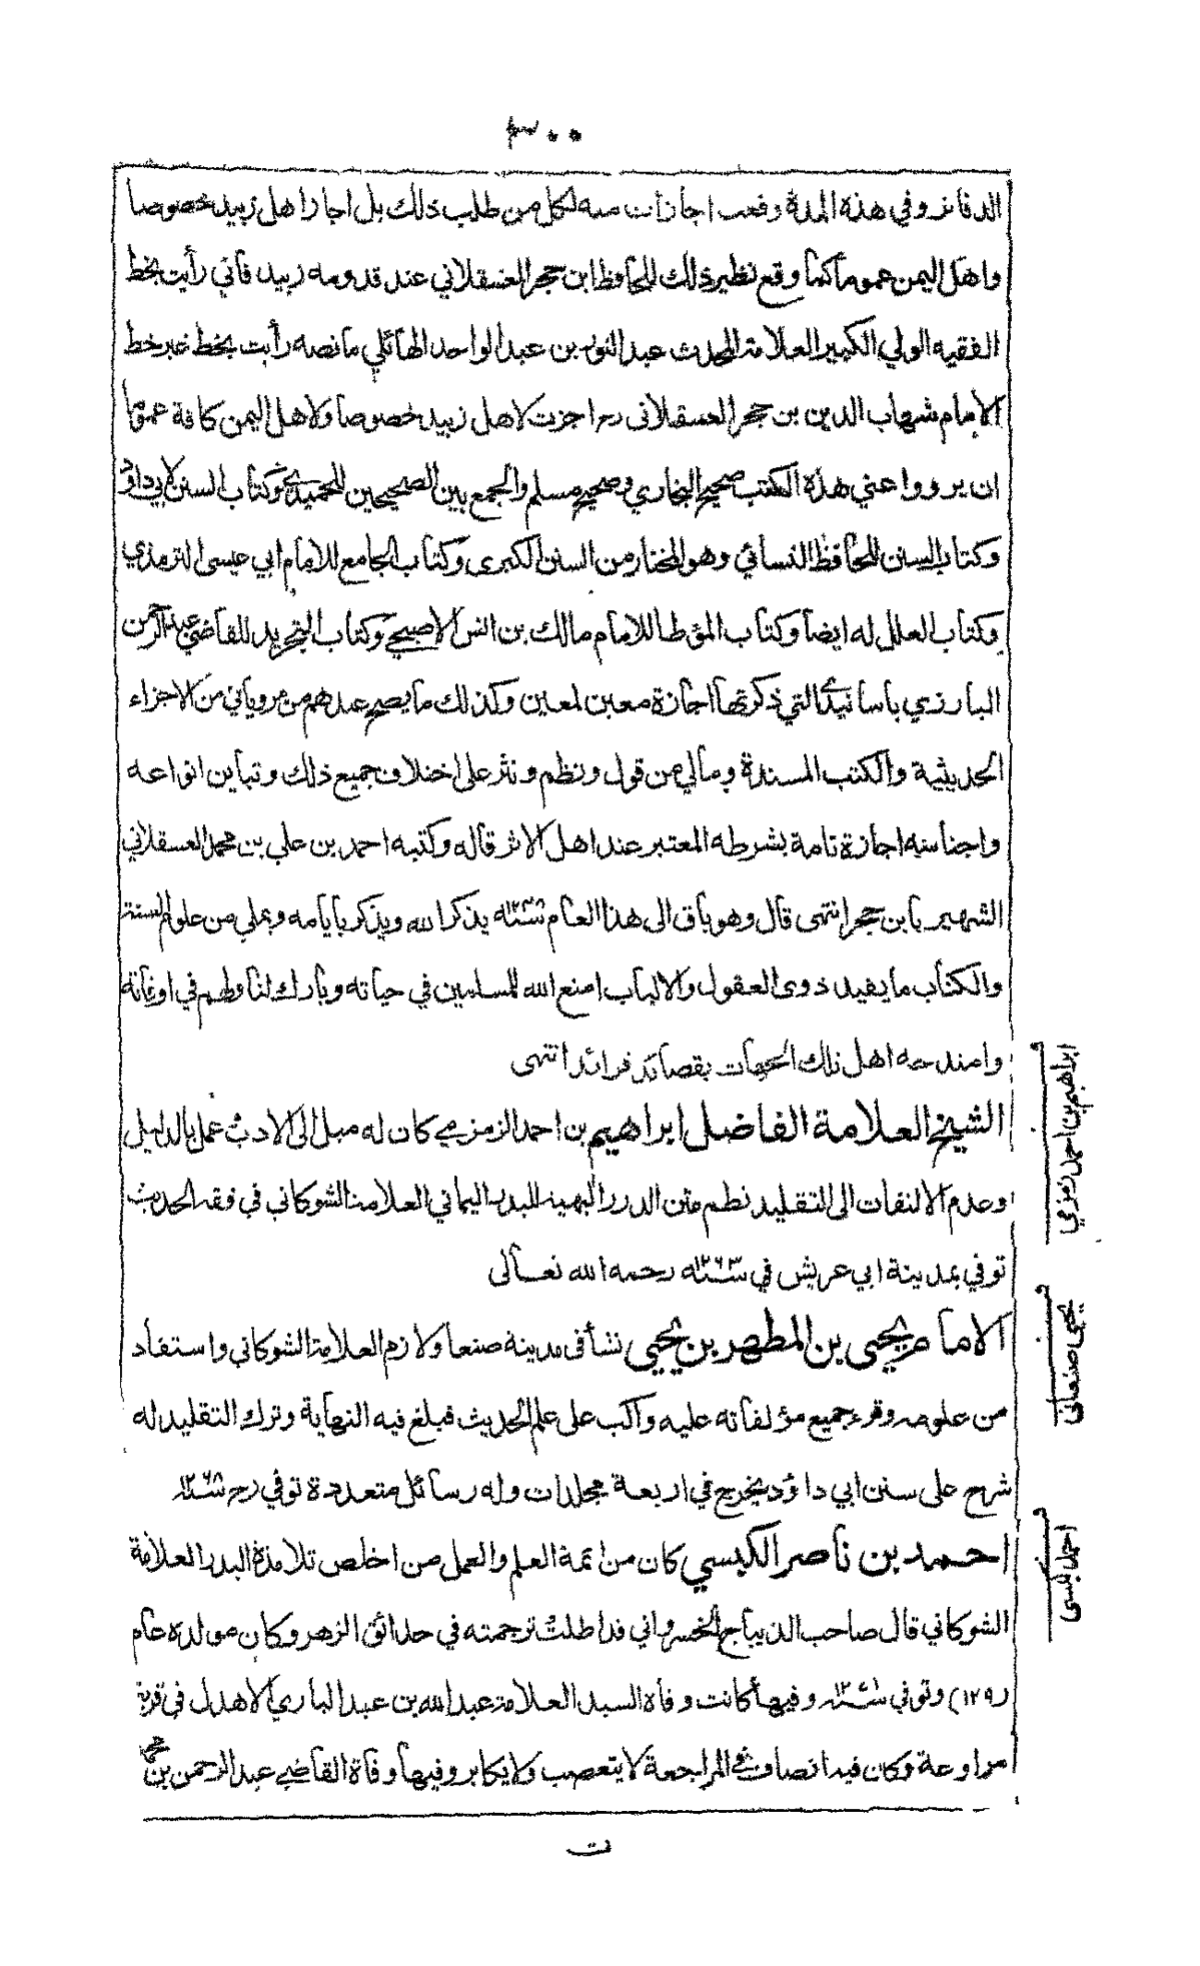 ٣٠٠
الدفاتر وفي هذه المدة رفعت اجازات منه لكل من طلب ذلك بل اجاز اهل زبيد خصوصا
واهل اليمن عموما كما وقع نظير ذلك للحافظ ابن حجر العسقلاني عند قدومه زبيد فاني رأيت بخط
الفقيه الولي الكبير العلامة المحدث عبد النور بن عبد الواحد الهائلي ما نصه رأيت بخط غير خط
الامام شهاب الدين بن حجر العسقلانى رح اجزت لاهل زبيد خصوصا ولاهل اليمن كافة عموما
ان يرووا عني هذه الكتب صحيح البخاري وصحيح مسلم والجمع بين الصحيحين للحميدي وكتاب السنن لابي داود
وكتاب السنن للحافظ النسائي وهو المختار من السنن الكبرى وكتاب الجامع للامام ابي عيسى الترمذي
وكتاب العلل له ايضا وكتاب المؤطا للامام مالك بن انس الاصبحي وكتاب التجريد للقاضي عبد الرحمن
البارزي بأسانيدي التي ذكرتها اجازة معين لمعين وكذلك ما يصح عندهم من مروياتي من الاجزاء
الحديثية والكتب المسندة ومالي من قول ونظم ونثر على اختلاف جميع ذلك وتباين انواعه
واجناسه اجازة تامة بشرطه المعتبر عند اهل الاثر قاله وكتبه احمد بن علي بن محمد العسقلاني
الشهير بابن حجر انتهى قال وهو باق الى هذا العام سنه يذكر الله ويذكر بأيامه ويملي من علوم السنة
والكتاب ما يفيد ذوى العقول والالباب امتع الله المسلمين في حياته وبارك لنا ولهم في اوقاته
وامتدحه اهل تلك الجهات بقصائد فرائد انتهى
الشيخ العلامة الفاضل ابراهيم بن احمد الزمزمي كان له ميل الى الادب عمل بالدليل
وعدم الالتفات الى التقليد نظم متن الدرر البهية للبدر اليماني العلامة الشوكاني في فقه الحديث
توفي بمدينة ابي عريش في سنه ١٢٦٣ رحمه الله تعالى
الامام يحيى بن المطهر بن يحيى نشأ فى مدينة صنعا ولازم العلامة الشوكاني واستفاد
من علومه وقرء جميع مؤلفاته عليه واكب على علم الحديث فبلغ فيه النهاية وترك التقليد له
شرح على سنن ابي داؤد يخرج في اربعة مجلدات وله رسائل متعددة توفي رح سنه ١٢٦٨
احمد بن ناصر الكبسي كان من ائمة العلم والعمل من اخلص تلامذة البدر العلامة
الشوكاني قال صاحب الديباج الخسرواني قد اطلت ترجمته في حدائق الزهر وكان مولده عام
(١٢٩) وتوفي سنه وفيها كانت وفاة السيد العلامة عبد الله بن عبد الباري الاهدل فى قرية
مراوعة وكان فيه انصاف في المراجعة لا يتعصب ولا يكابر وفيها وفاة القاضي عبد الرحمن بن محمد
ت
ابراهيم بن احمد زمزمي
يحيى صنعانى
احمد كبسى